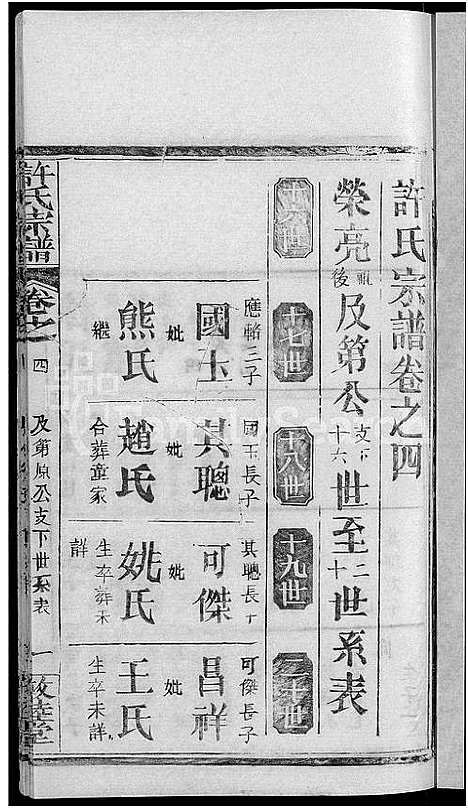 許氏宗譜卷之四
榮亮後及第公支下十六世至二十世系表
十六世
十七世
十八世
十九世
二十世
應輅三子
國玉
妣
熊氏
繼
國玉長子
其聰
妣
趙氏
合葬童家
其聰長子
可傑
妣
姚氏
生卒葬未詳
可傑長子
昌祥
妣
王氏
生卒未詳
許氏宗譜
卷之四
及第原公支下世系表
一
敦睦堂